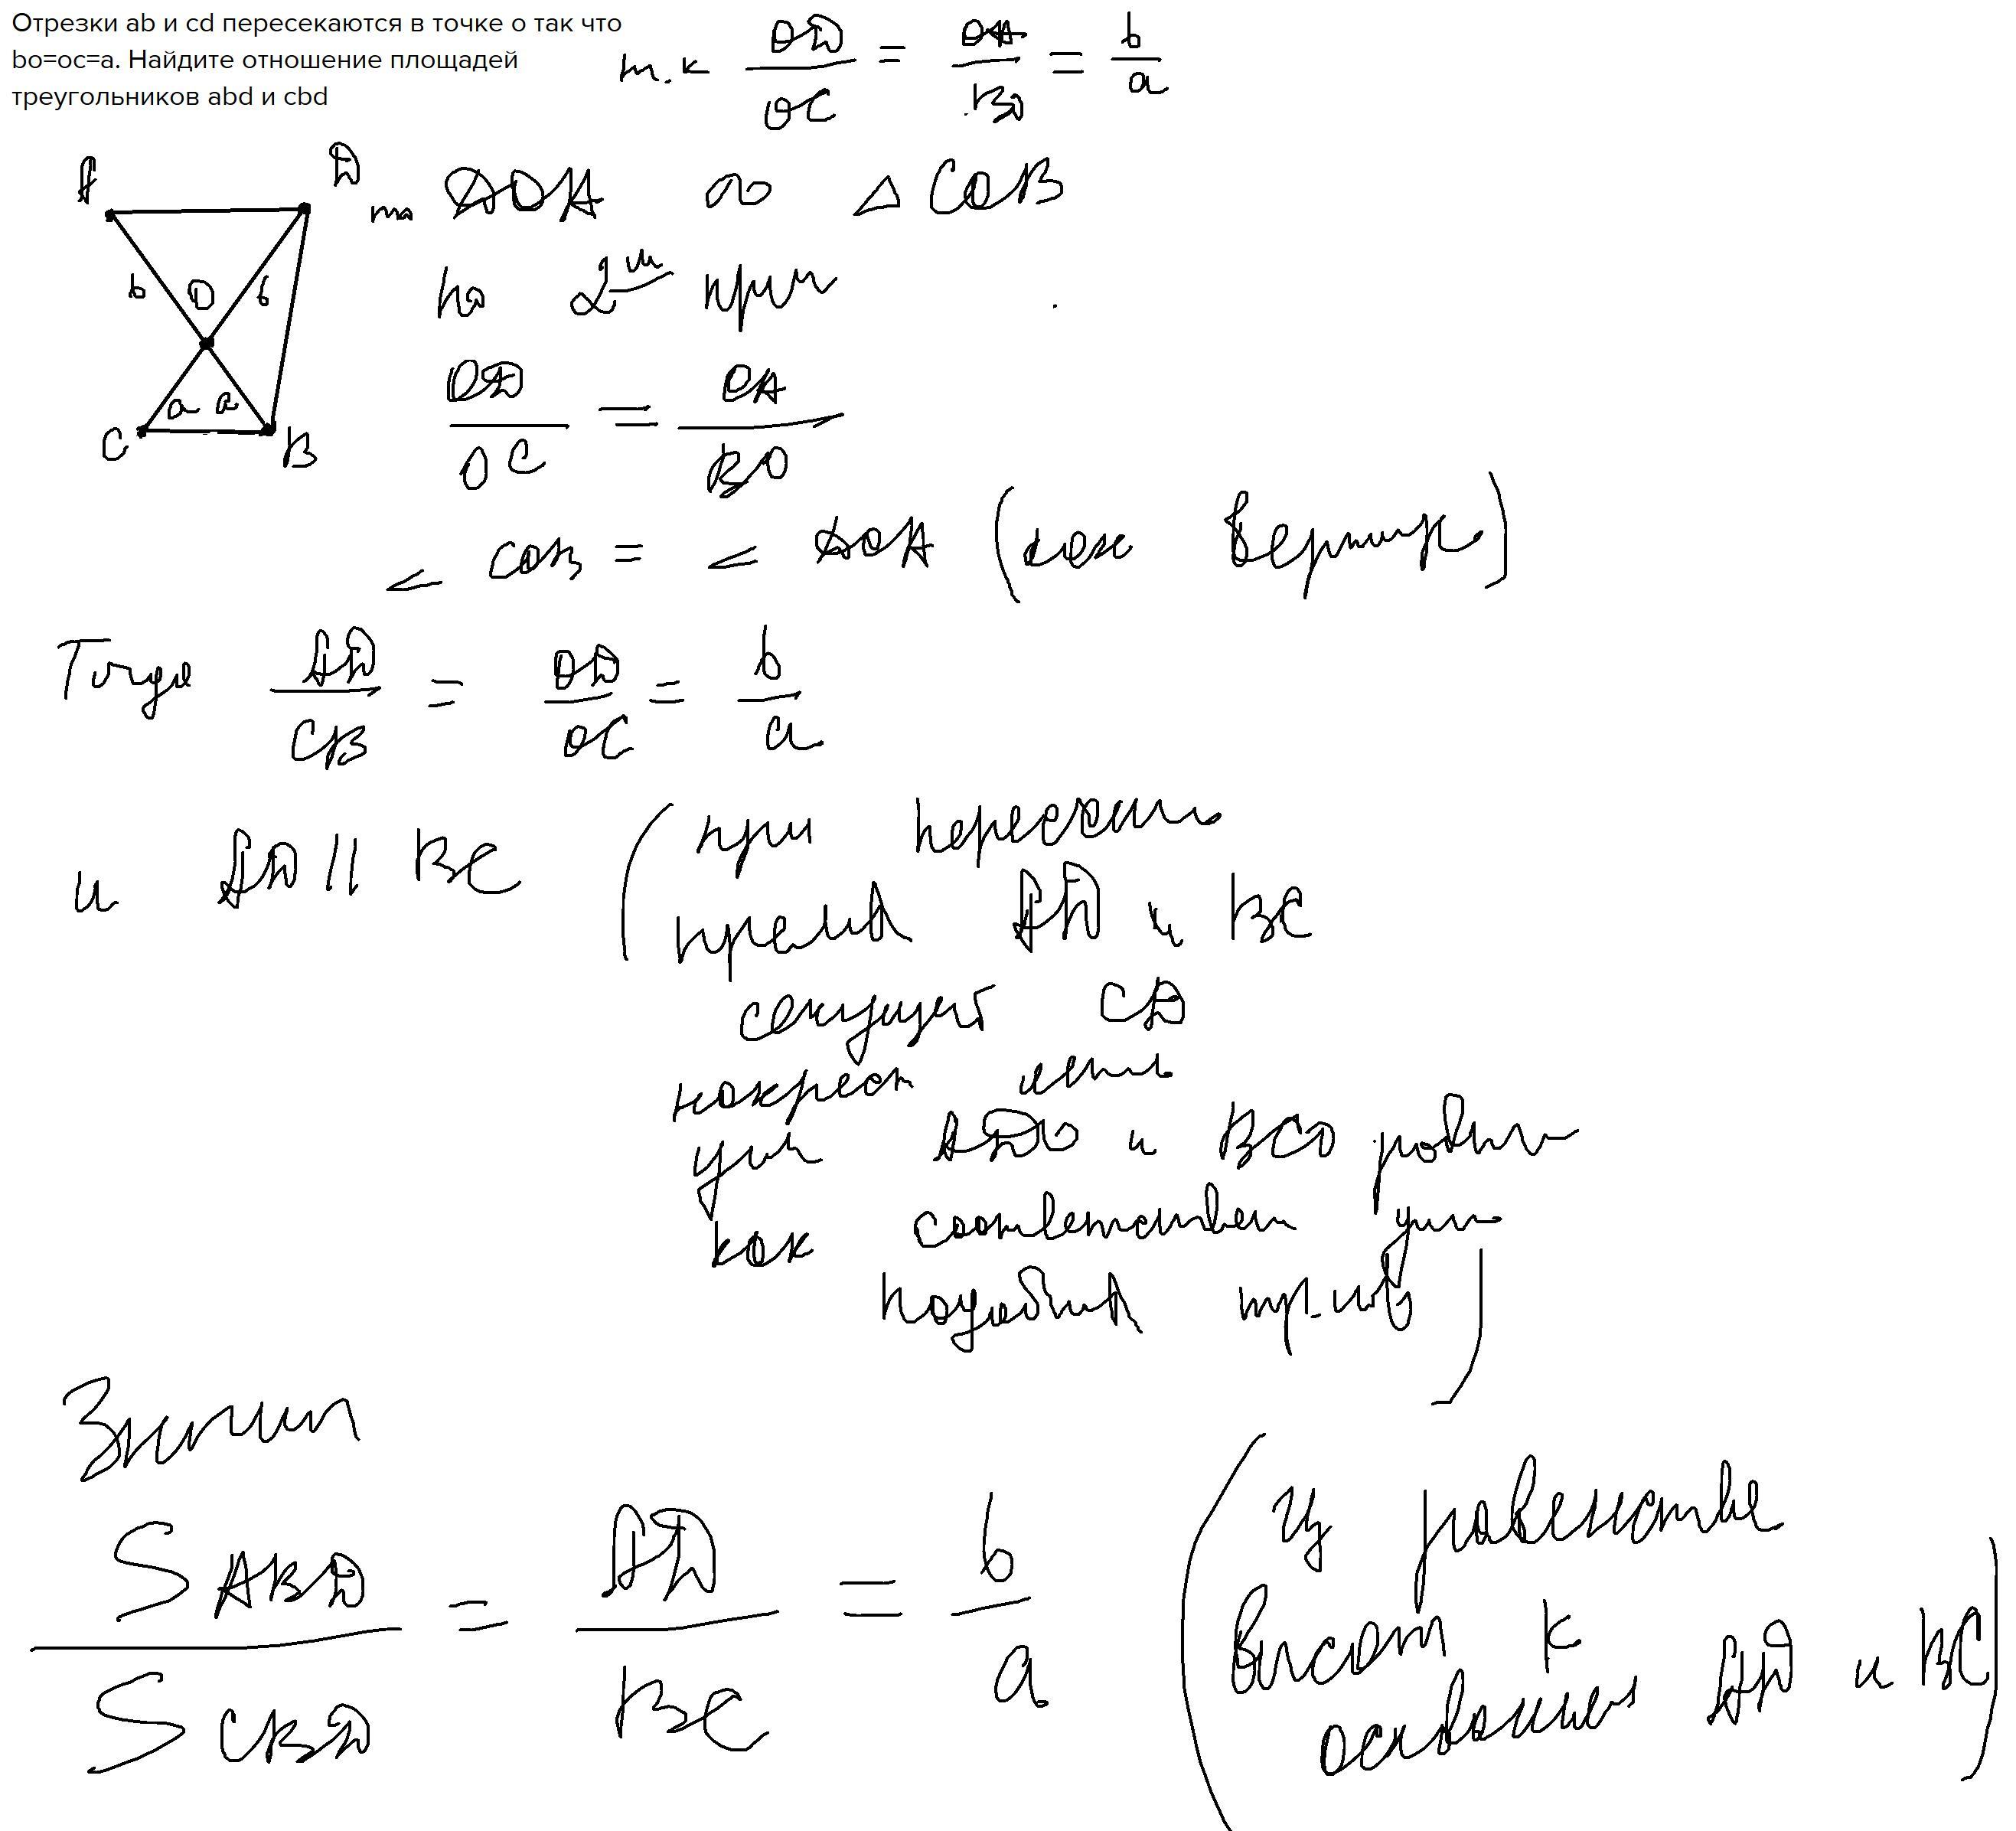 Отрезки ab и cd пересекаются в точке о так что
bo=oc=a. Найдите отношение площадей
треугольников abd и cbd
т.к OD/OC = OA/BO = b/a
A D
b O b
a a
C B
то DOA ∾ △ COB
по 2
OD/OC = OA/BO
< COB = < DOA (как вертик)
Тогда AD/CB = OD/OC = b/a
и AD || BC (при пересечении
прямых AD и BC
секущей CD
накрест
ADO и BCO равны
как соответствен
подобных тр-ков)
Значит
S ABD / S CBD = AD/BC = b/a
(Из равенства
высот к
основаниям AD и BC)